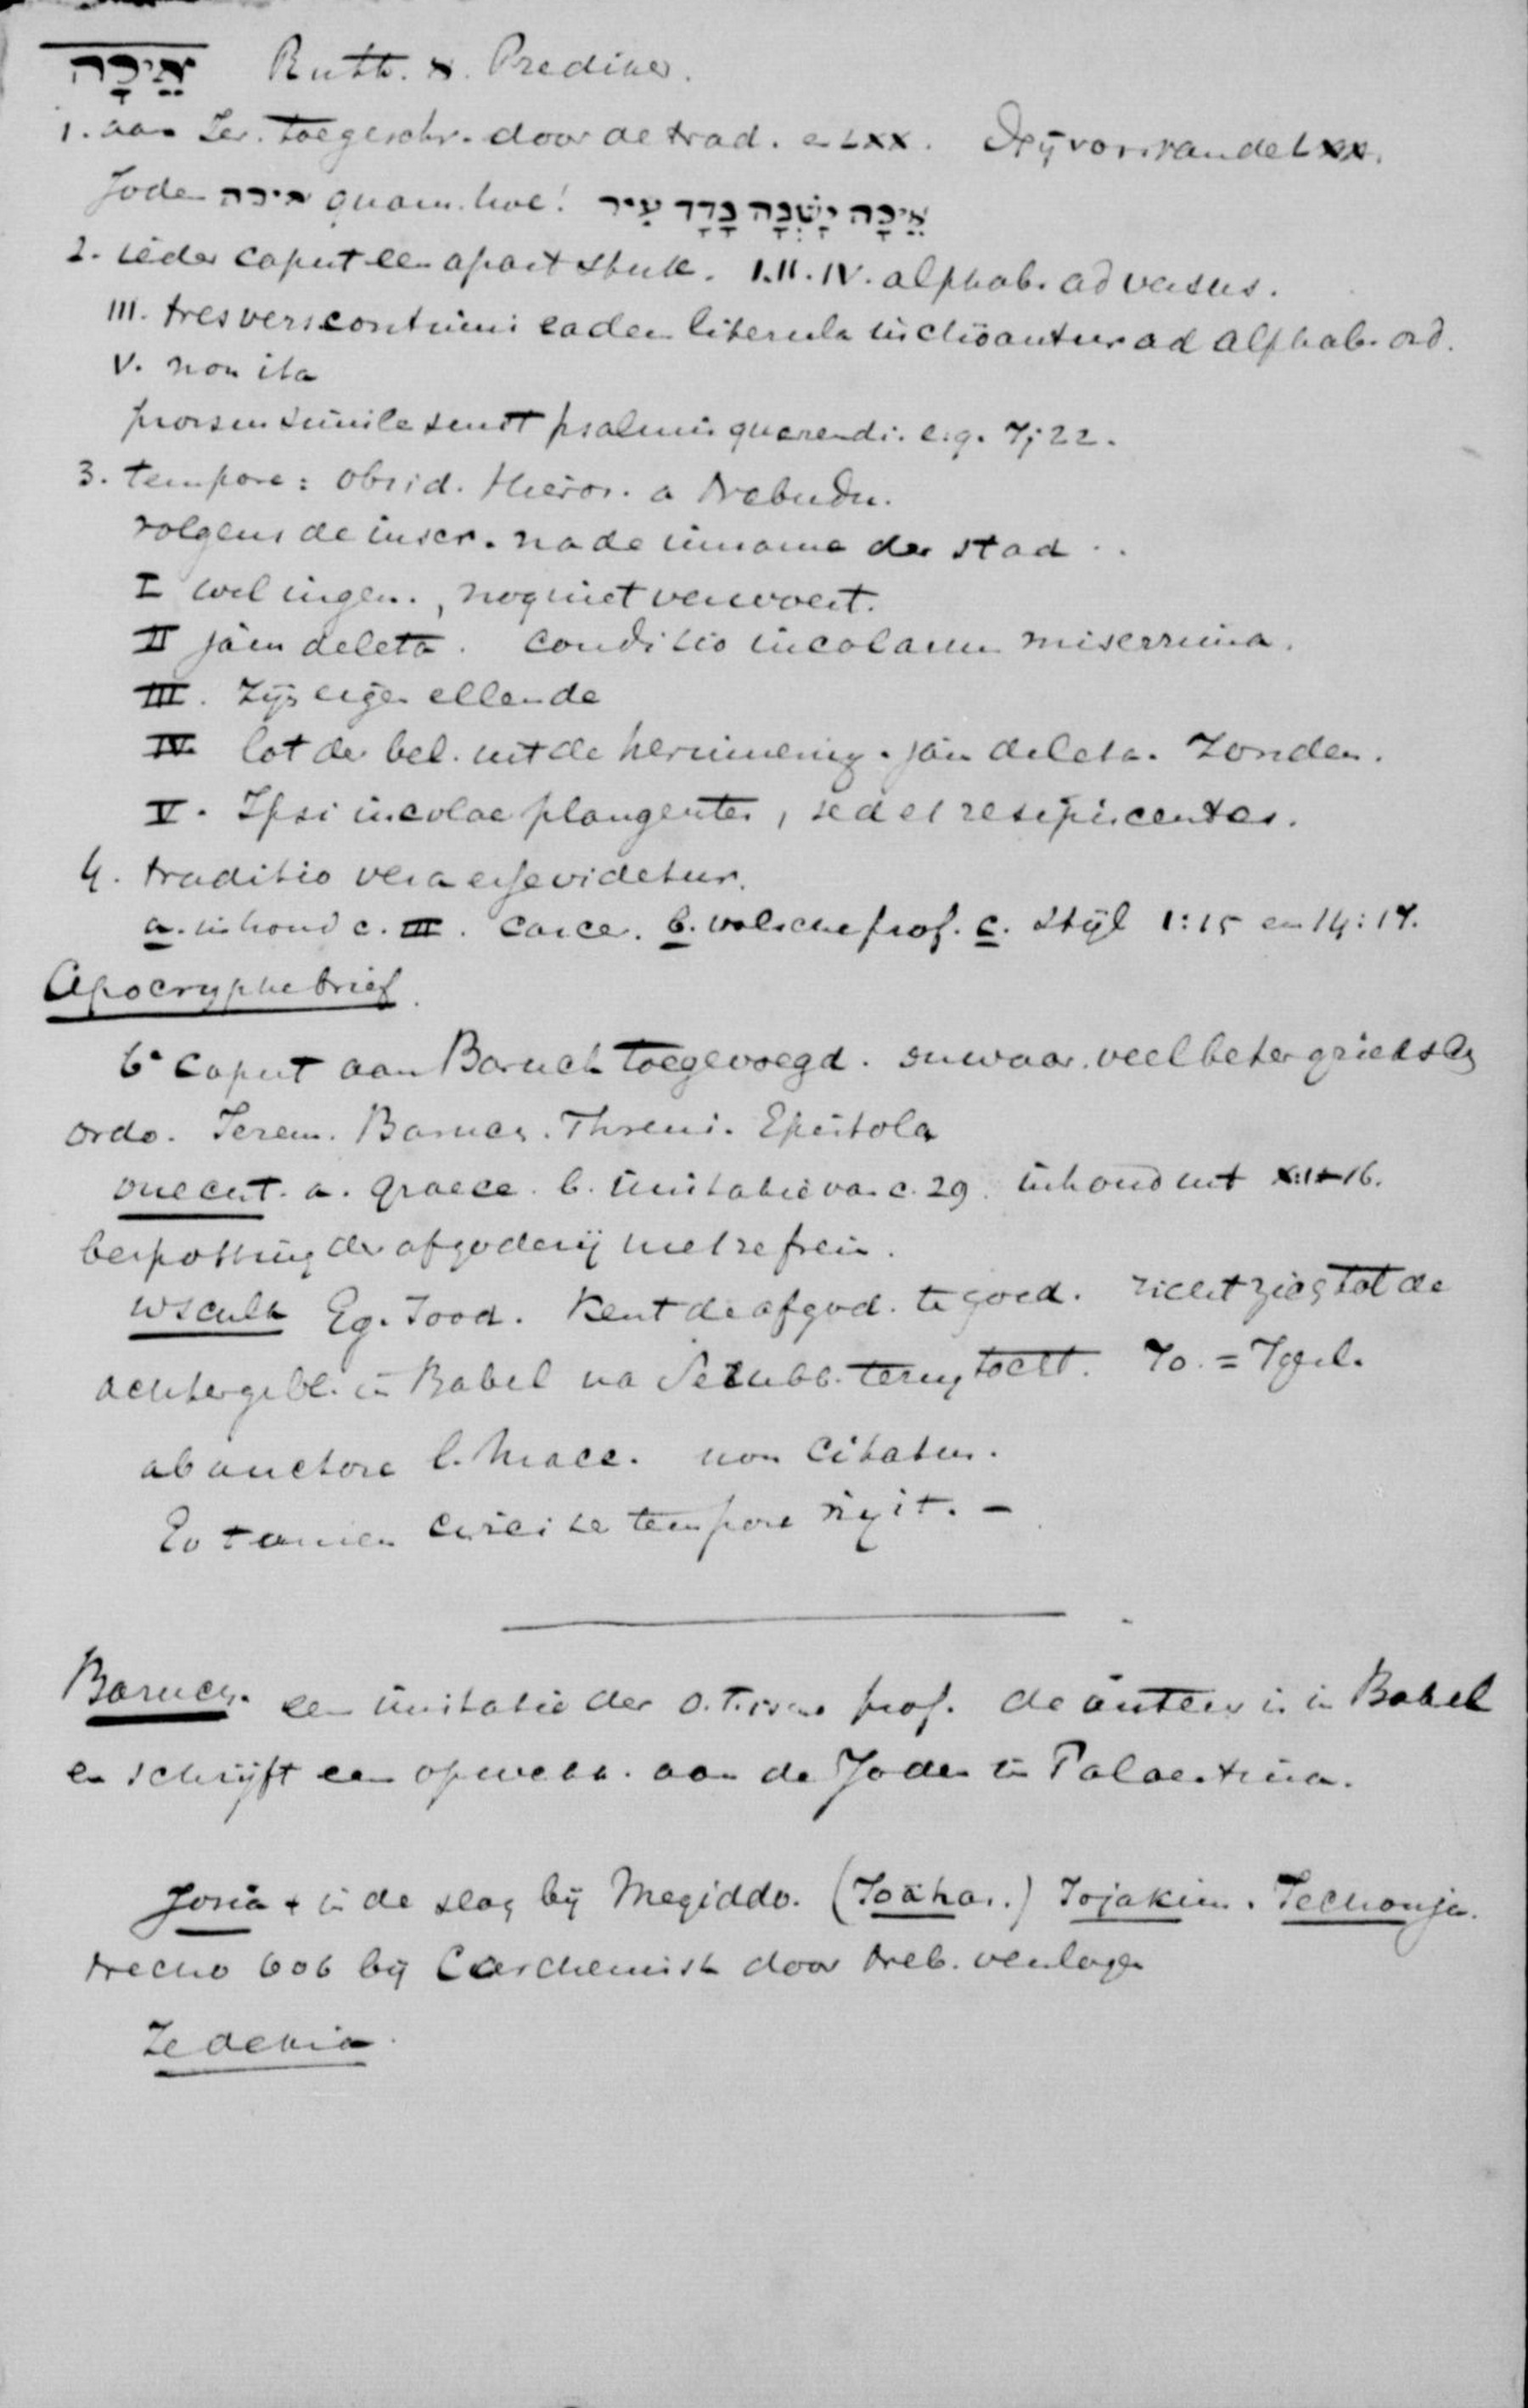 אֵיכָה Ruth. x. Prediker.
1. aan Jer. toegeschr. door de trad. en LXX. Drijvers van de LXX.
Joden איכה quam. hoe! אֵיכָה יָשְׁבָה בָדָד עיר
2. ieder caput een apart stuk. I. II. IV. alphab. ad versus.
III. tres versi continui eadem literula inchoantur ad alphab. ord.
V. non ita
prorsus simile sunt psalmis quaerendi. e.g. 7; 22.
3. tempore: obsid. Hieros. a Nebudn.
volgens de inscr. na de inname der stad ..
I wel ingen., nog niet verwoest.
II jam deleta. conditio incolarum miserrima.
III. zijn eigen ellende
IV lot der bel. uit de herinnering. jam deleta. Zonden.
V. Ipsi incolae plangentes, sed et resipiscentes.
4. traditio vera esse videtur.
a. inhoud c. III. carcer. b. valsche prof. c. stijl 1:15 en 14:17.
Apocryphe brief.
6e caput aan Baruch toegevoegd. onwaar. veel beter grieksch
ordo. Jerem. Baruch. Threni. Epistola
onecht. a. graece. b. imitatie van c. 29. inhoud uit X:1-16.
bespotting der afgoderij met refrein.
wsch Eg. Jood. Kent de afgod. te goed. richt zich tot de
achtergebl. in Babel na Serubb. terugtocht. 70. = 7 gesl.
ab auctore l. Macc. non citatur.
Eo tamen circiter tempore vixit. –
Baruch. een imitatie der O.T.ische prof. de auteur is in Babel
en schrijft een opwekk. aan de Joden in Palaestina.
Josia + in de slag bij Megiddo. (Joahas.) Jojakim. Jechonja.
Necho 606 bij Carchemish door Neb. verslagen
Zedekia.